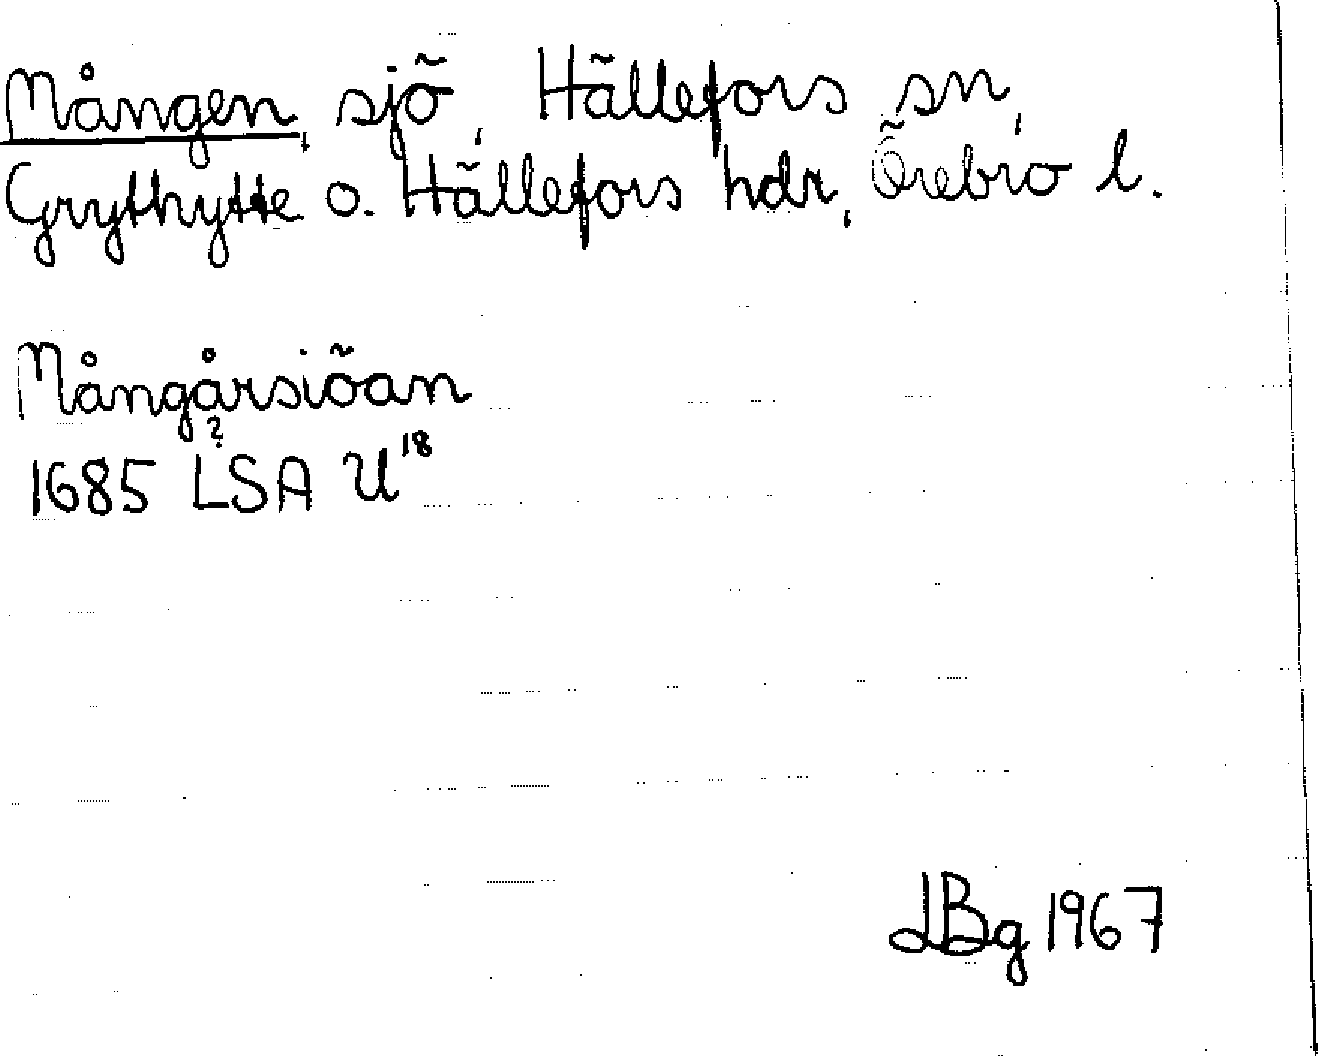 Mången, sjö, Hällefors sn,
Grythytte o. Hällefors hdr, Örebro l.
Mångårsiöan
?
1685 LSA U18
LBg 1967